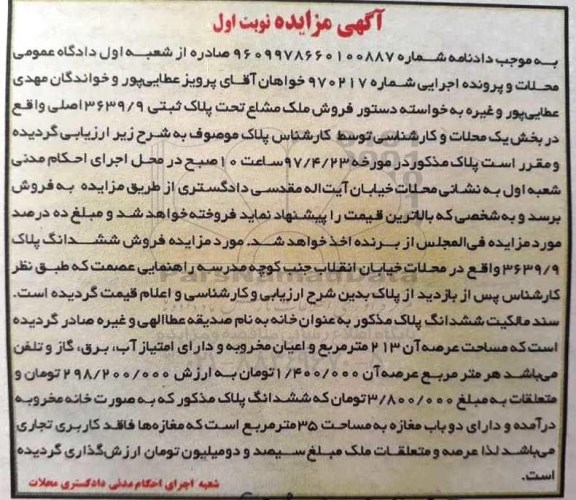 آگهی مزایده نوبت اول
به موجب دادنامه شماره ۹۶۰۹۹۷۸۶۶۰۱۰۰۸۸۷ صادره از شعبه اول دادگاه عمومی
محلات و پرونده اجرایی شماره ۹۷۰۲۱۷ خواهان آقای پرویز عطایی‌پور و خواندگان مهدی
عطایی‌پور و غیره به خواسته دستور فروش ملک مشاع تحت پلاک ثبتی ۳۶۳۹/۹ اصلی واقع
در بخش یک محلات و کارشناسی توسط کارشناس پلاک موصوف به شرح زیر ارزیابی گردیده
و مقرر است پلاک مذکور در مورخه ۹۷/۴/۲۳ ساعت ۱۰ صبح در محل اجرای احکام مدنی
شعبه اول به نشانی محلات خیابان آیت‌اله مقدسی دادگستری از طریق مزایده به فروش
برسد و به شخصی که بالاترین قیمت را پیشنهاد نماید فروخته خواهد شد و مبلغ ده درصد
مورد مزایده فی‌المجلس از برنده اخذ خواهد شد. مورد مزایده فروش ششدانگ پلاک
۳۶۳۹/۹ واقع در محلات خیابان انقلاب جنب کوچه مدرسه راهنمایی عصمت که طبق نظر
کارشناس پس از بازدید از پلاک بدین شرح ارزیابی و کارشناسی و اعلام قیمت گردیده است.
سند مالکیت ششدانگ پلاک مذکور به عنوان خانه به نام صدیقه عطاالهی و غیره صادر گردیده
است که مساحت عرصه آن ۲۱۳ مترمربع و اعیان مخروبه و دارای امتیاز آب، برق، گاز و تلفن
می‌باشد هر متر مربع عرصه آن ۱/۴۰۰/۰۰۰ تومان به ارزش ۲۹۸/۲۰۰/۰۰۰ تومان و
متعلقات به مبلغ ۳/۸۰۰/۰۰۰ تومان که ششدانگ پلاک مذکور که به صورت خانه مخروبه
درآمده و دارای دو باب مغازه به مساحت ۳۵ مترمربع است که مغازه‌ها فاقد کاربری تجاری
می‌باشد لذا عرصه و متعلقات ملک مبلغ سیصد و دو میلیون تومان ارزش‌گذاری گردیده
است.
شعبه اجرای احکام مدنی دادگستری محلات